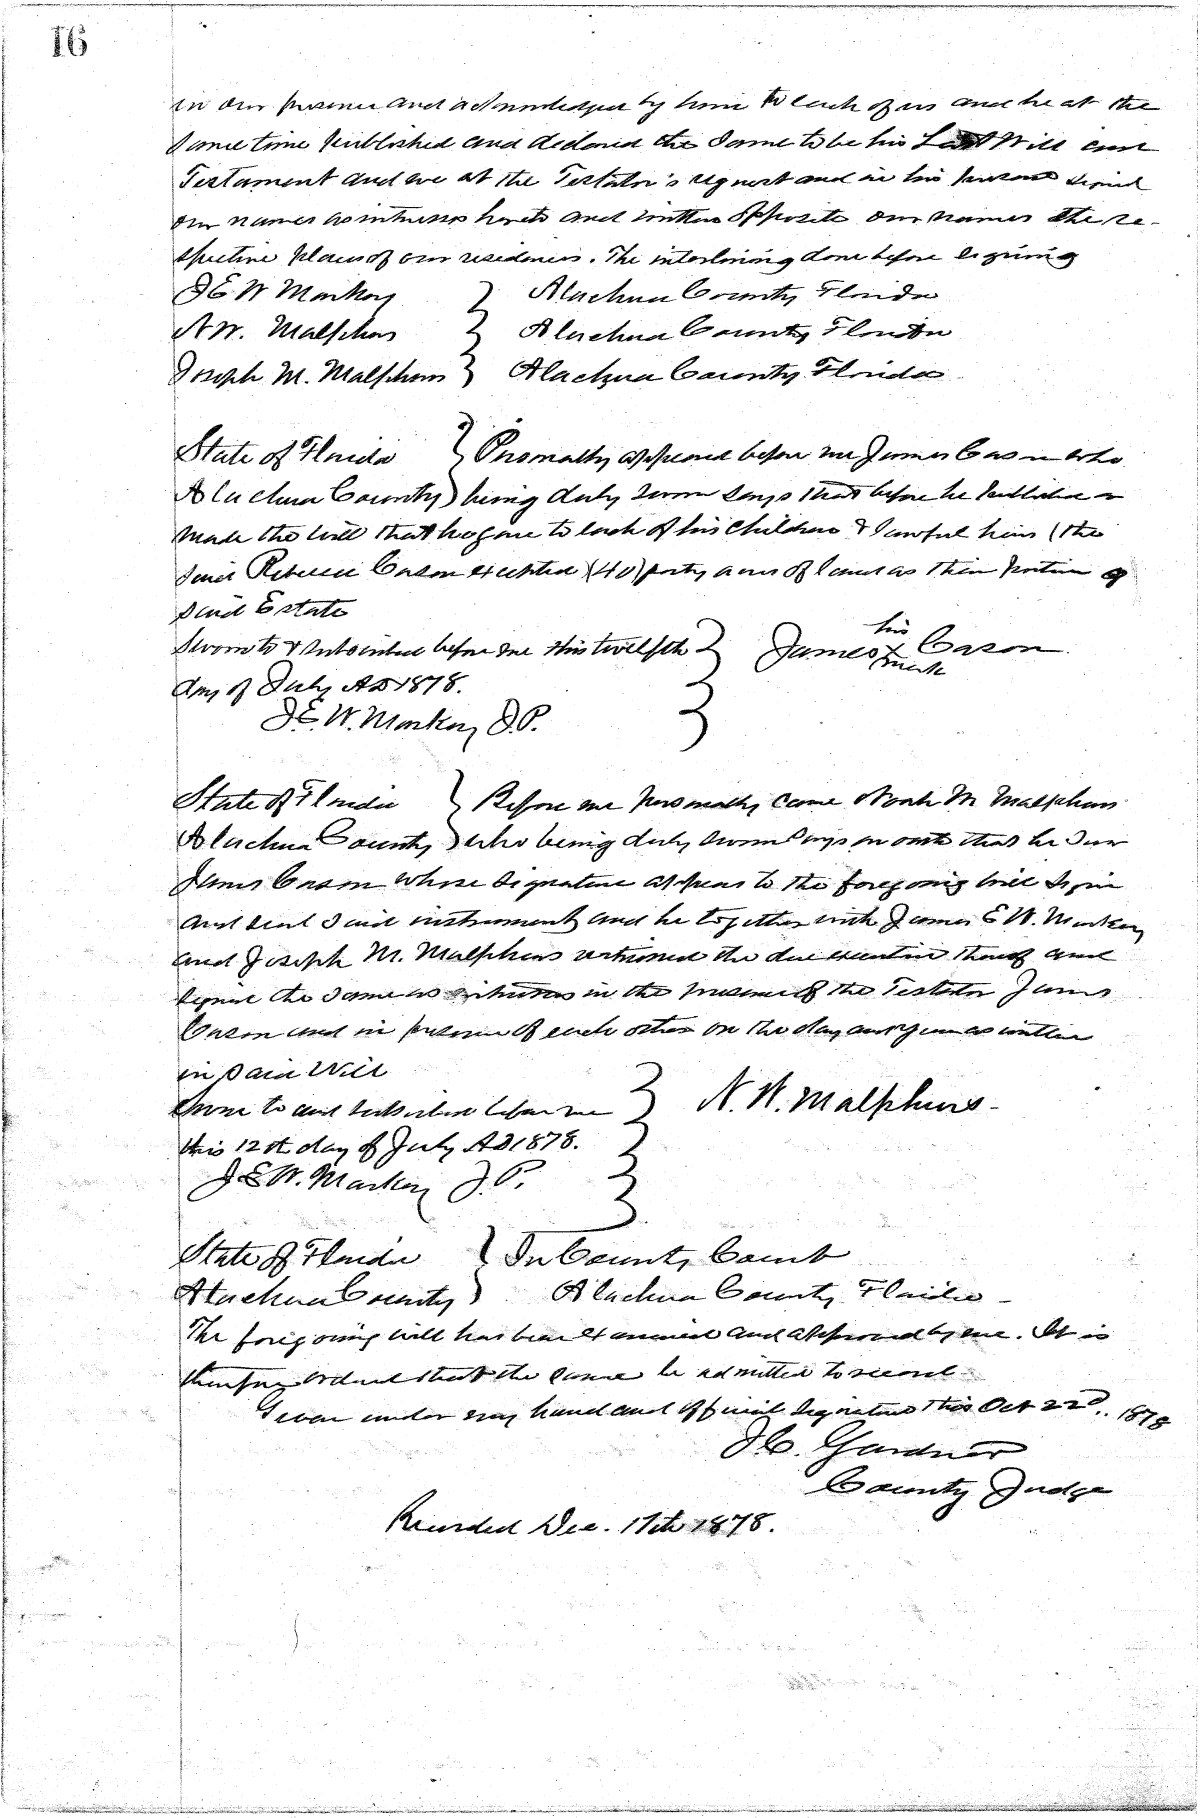 16
in our presence and acknowledged by him to each of us and he at the
same time published and declared the same to be his Last Will and
Testament and we at the Testator's request and in his presence signed
our names as witnesses hereto and written opposite our names the re-
spective places of our residences. The interlining done before signing
J E W Markey } Alachua County Florida
N W. Malphus } Alachua County Florida
Joseph M. Malphurs } Alachua County Florida
State of Florida } Personally appeared before me James Cason who
Alachua County } being duly sworn says that before he published or
made the will that he gave to each of his children & lawful heirs (the
said Rebecca Cason excepted (40) forty acres of land as their portion of
said Estate
Sworn to & subscribed before me this twelfth } James his X mark Cason
day of July AD 1878.
J E. W. Markey J.P.
State of Florida } Before me personally came Noah W Malphurs
Alachua County } who being duly sworn says on oath that he saw
James Cason whose signature appears to the foregoing will sign
and seal said instrument and he together with James E W. Markey
and Joseph M. Malphurs witnessed the due execution thereof and
signed the same as witnesses in the presence of the Testator James
Cason and in presence of each other on the day and year as written
in said Will
Sworn to and subscribed before me } N. W. Malphurs -
this 12th day of July AD 1878.
J E W. Markey J. P.
State of Florida } In County Court
Alachua County } Alachua County Florida -
The foregoing will has been examined and approved by me. It is
therefore ordered that the same be admitted to record
Given under my hand and official signature this Oct 22d. 1878
J C. Gardner
County Judge
Recorded Dec. 17th 1878.